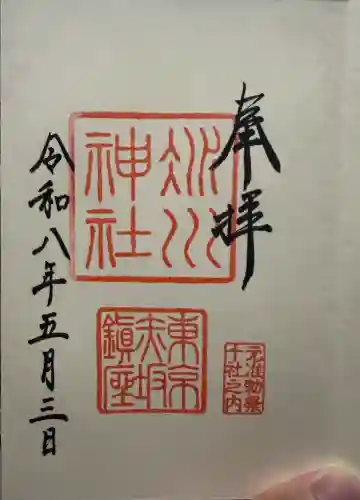 奉拝
氷川
神社
東京
赤坂
鎮座
元准勅祭
十社之内
令和八年五月三日